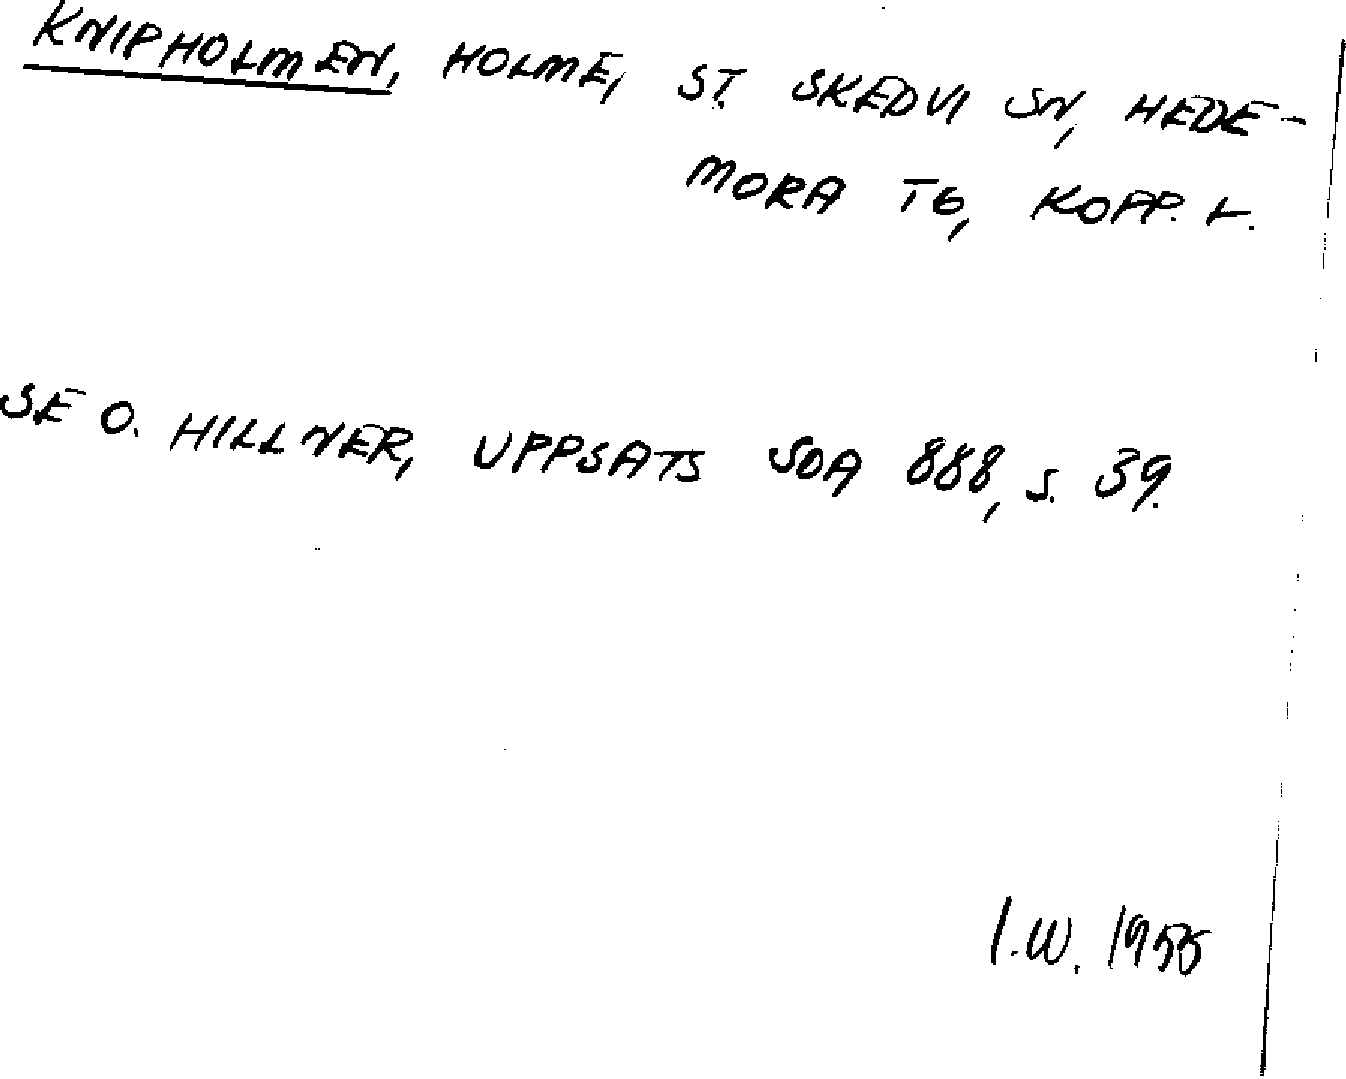 KNIPHOLMEN, HOLME, ST. SKEDVI SN, HEDE-
MORA TG, KOPP. L.
SE O. HILLNER, UPPSATS SOA 888, s. 39.
I.W. 1955